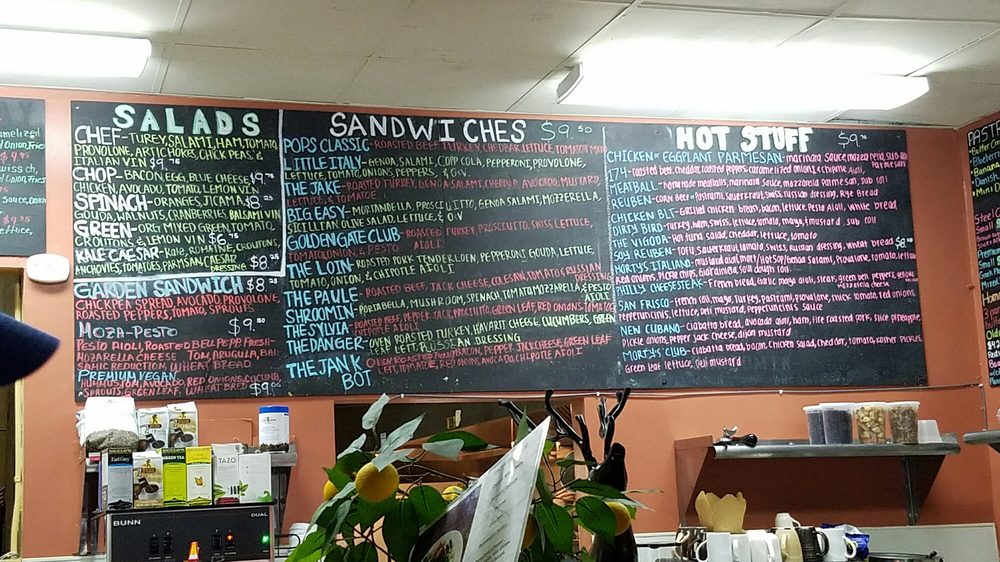 SALADS
CHEF-TUREY, SALAMI, HAM, TOMATO,
PROVOLONE, ARTICHOKES, CHICK PEAS &
ITALIAN VIN $9.75
CHOP-BACON, EGG, BLUE CHEESE $9.75
CHICKEN, AVOCADO, TOMATO, LEMON VIN
SPINACH-ORANGES, JICAMA $8.25
GOUDA, WALNUTS, CRANBERRIES, BALSAMI VIN
GREEN-ORG MIXED GREEN, TOMATO,
CROUTONS, & LEMON VIN $6.75
KALE CAESAR- KALE, ROMAINE, CROUTONS,
ANCHOVIES, TOMATOES, PARMSAN, CAESAR
DRESSING $8.25
GARDEN SANDWICH $8.25
CHICKPEA SPREAD, AVOCADO, PROVOLONE,
ROASTED PEPPERS, TOMATO, SPROUTS.
MOZA-PESTO $9.50
PESTO AIOLI, ROASTED BELL PEPP, FRESH-
MOZARELLA CHEESE TOM, ARUGULA, BAL-
SAMIC REDUCTION, WHEAT BREAD
PREMIUM VEGAN
HUMMUS TOM, AVOCADO, RED ONIONS, CUCUMB,
SPROUTS, GREEN LEAF, WHEAT BREAD
SANDWICHES $9.50
POPS CLASSIC-ROASTED BEEF, TURKEY, CHEDDAR, LETTUCE, TOMATO & MUST
LITTLE ITALY-GENOA, SALAMI, COPP COLA, PEPPERONI, PROVOLONE,
LETTUCE, TOMATO, ONIONS, PEPPERS, & O.V
THE JAKE-ROASTED TURKEY, GENOA SALAMI, CHEDDAR, AVOCADO, MUSTARD,
LETTUCE, & TOMATOE
BIG EASY-MORTANDELLA, PROSCIUTTO, GENOA SALAMI, MOZZERELLA,
SICILLIAN OLIVE SALAD, LETTUCE, & O.V
GOLDEN GATE CLUB-ROASTED TURKEY, PROSCIUTTO, SWISS, LETTUCE,
TOMATO, ONION, & PESTO AIOLI
THE LOIN-ROASTED PORK TENDERLOEN, PEPPERONI, GOUDA, LETTUCE,
TOMATO, ONION, & CHIPOTLE AIOLI
THE PAULE-ROASTED BEEF, TACK CHEESE, COLESAN, TOMATO & RUSSIAN DRESSING
SHROOMIN-PORTABELLA, MUSHROOM, SPINACH, TOMATO, MOZZARELLA & PESTO AIOLI
THE SYLVIA-ROASTED BEEF, PEPPER JACK, PROCIUTTO, GREEN LEAF, RED ONIONS, TOMATO,
CHIPOTLE AIOLI
THE DANGER-OVEN ROASTED TURKEY, HAVARIT CHEESE, CUCUMBERS, GREEN
LEAF, RUSSIAN DRESSING
THE JANK BOT
OVEN ROASTED TURKEY, BACON, PEPPER JACK CHEESE, GREEN LEAF
LET, TOMATOE, RED ONIONS, AVOCADO, CHIPOTLE AIOLI
HOT STUFF $9.75
CHICKEN or EGGPLANT PARMESAN-marinara sauce, mozzarella, sub roll
parmesan
174-roasted beef, cheddar, roasted peppers, caramelized onions, & chipotle aioli,
MEATBALL-homemade meatballs, marinara sauce, mozzarella parmesan, sub roll
REUBEN-corn beef or pastrami, sauerkraut, swiss, russian dressing, rye bread
CHICKEN BLT-Grilled chicken breast, bacon, lettuce, Pesto Aioli, white bread
DIRTY BIRD-Turkey, ham, swiss, lettuce, tomato, mayo, & mustard, sub roll
THE VIGODA-Hot tuna salad, cheddar, lettuce, tomato
SOY REUBEN-Tofu, sauerkraut, tomato, swiss, russian dressing, wheat bread $8.
MORTYS ITALIANO-
red onions, pepperchini, Giardiniera, sour dough roll
PHILLY CHEESESTEAK-French bread, garlic mayo aioli, steak, green bell peppers, yellow
mozzarella cheese
SAN FRISCO-French roll, mayo, turkey, pastrami, provolone, thick tomato, red onions,
pepperuncinis, lettuce, deli mustard, pepperuncinis sauce
NEW CUBANO-Ciabatta bread, avocado aioli, ham, fire roasted pork, slice pineapple,
pickle onions, pepper jack cheese, dijon mustard
MORTY'S CLUB-Ciabatta bread, bacon, chicken salad, cheddar, tomato, kosher pickles,
Green leaf lettuce, Deli mustard
BUNN
DUAL
TAZO
Earl Grey
GREEN TEA